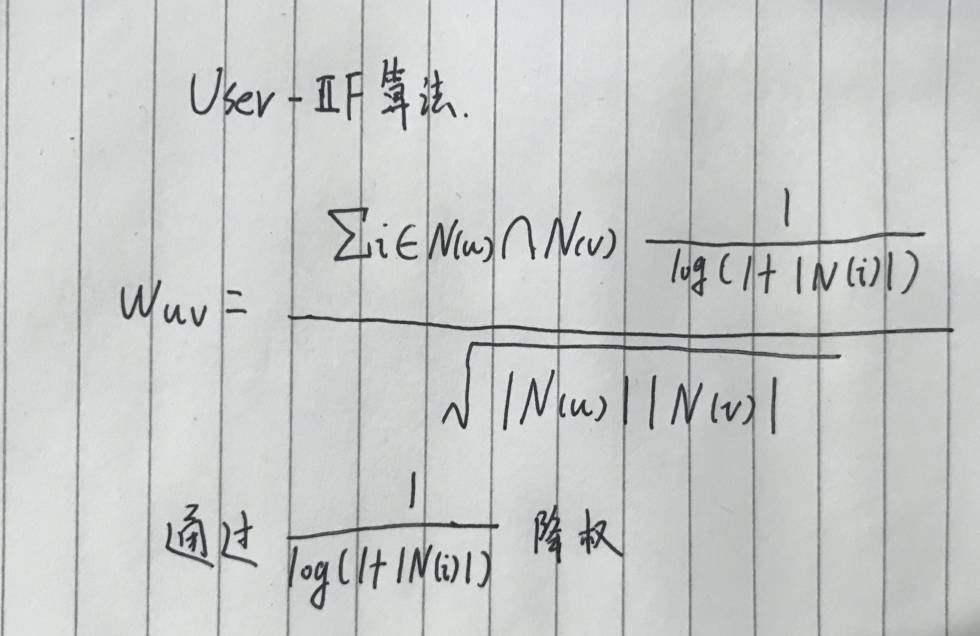 User-IIF算法.
Wuv = \frac{\sum i \in N(u) \cap N(v) \frac{1}{\log(1+|N(i)|)}}{\sqrt{|N(u)||N(v)|}}
通过 \frac{1}{\log(1+|N(i)|)} 降权